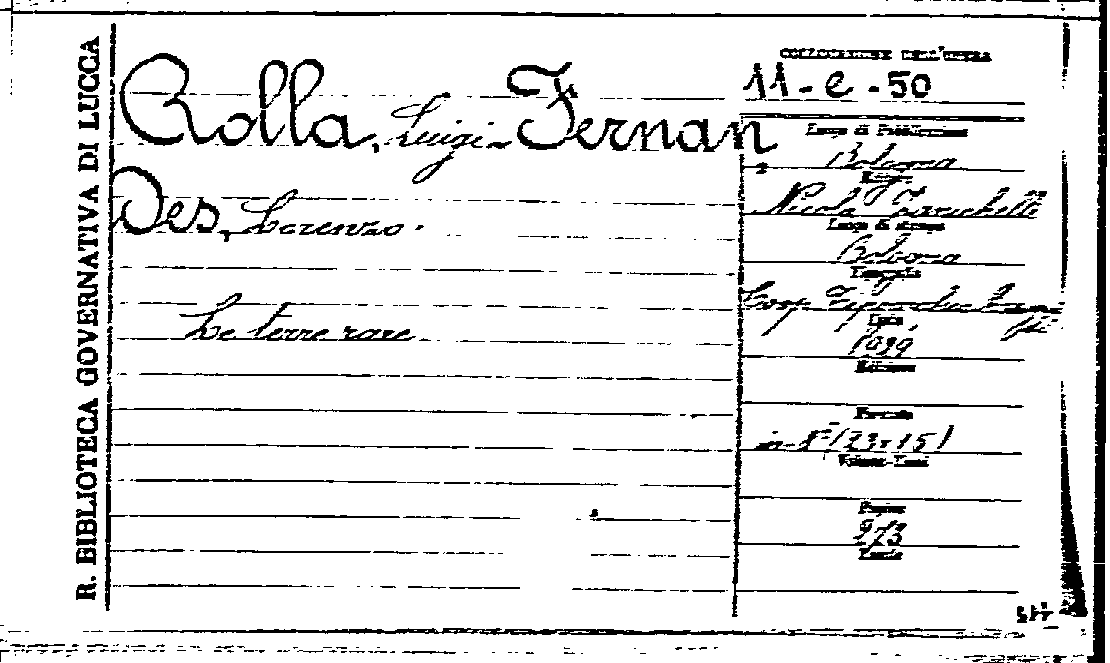 R. BIBLIOTECA GOVERNATIVA DI LUCCA
Rolla, Luigi - Fernan
Des, Lorenzo.
Le terre rare
COLLOCAZIONE DELL'OPERA
11 - e - 50
Luogo di Pubblicazione
Bologna
Nicola Zanichelli
Luogo di stampa
Bologna
Tipografia
Coop. Tipografica
Data
1929
Edizione
Formato
in-8° (23x15)
Volume-Tomi
Pagine
Tavole